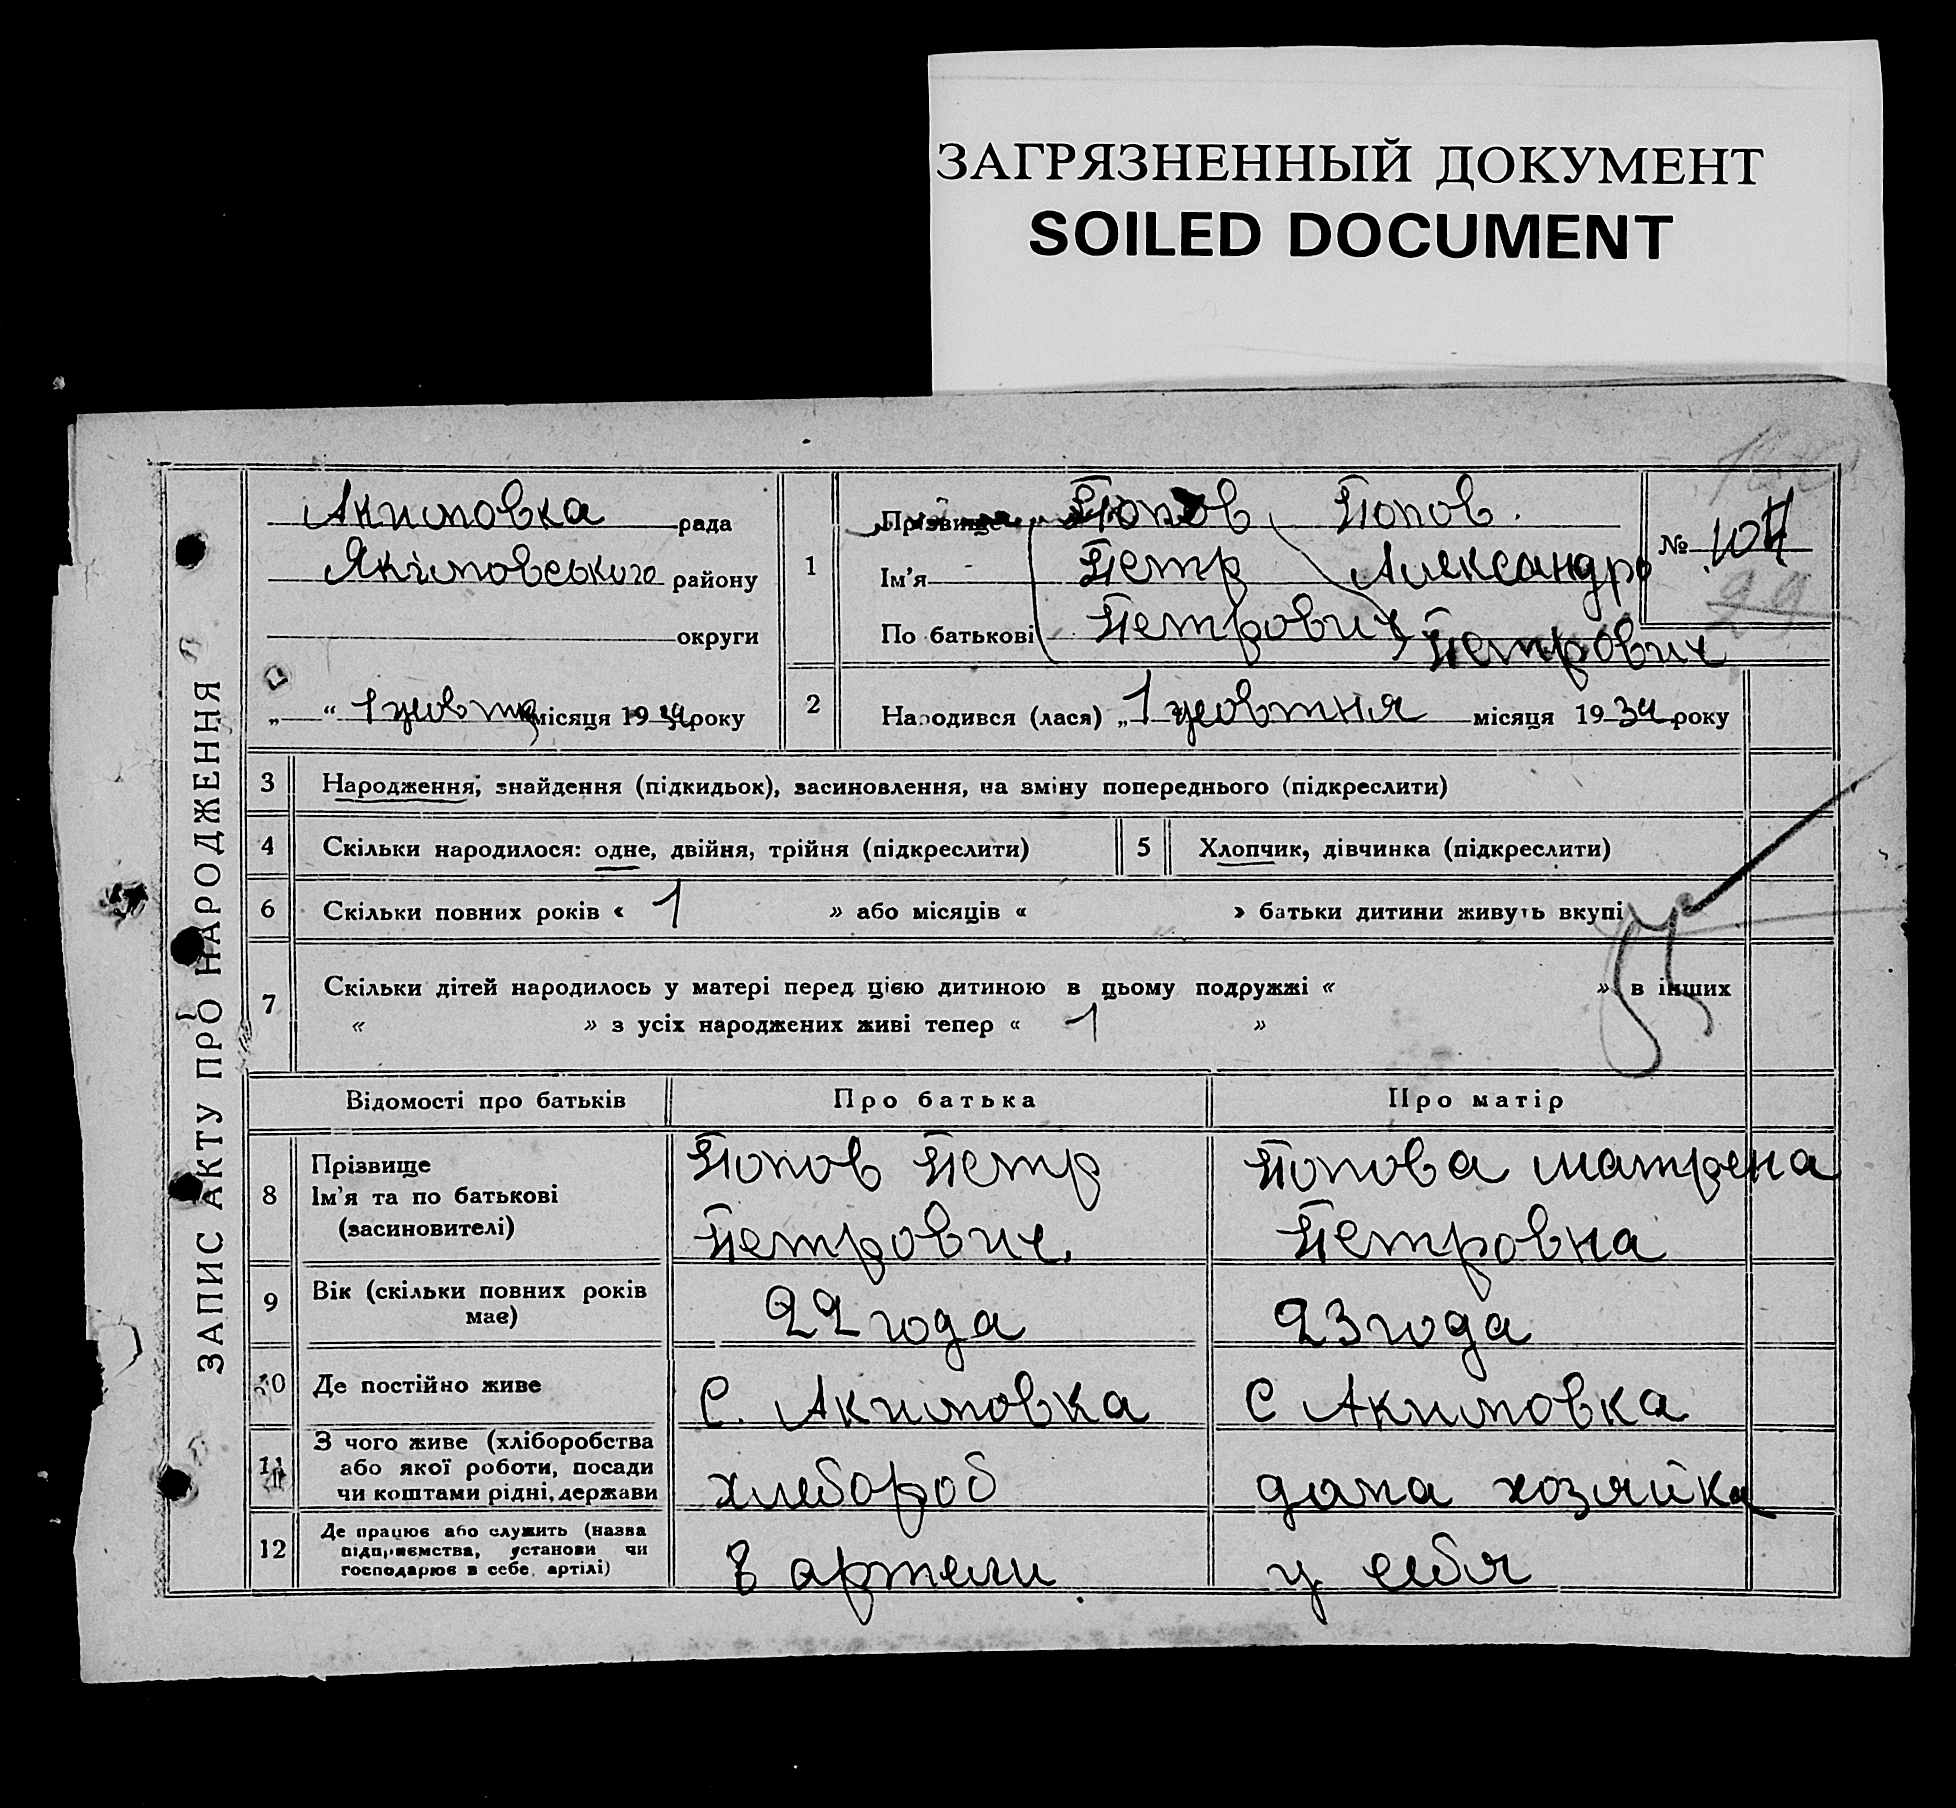 ЗАГРЯЗНЕННЫЙ ДОКУМЕНТ
SOILED DOCUMENT
ЗАПИС АКТУ ПРО НАРОДЖЕННЯ
Акимовка рада
Якімовського району
округи
„ “ 1 жовтня місяця 1934 року
1
Прізвище Попов Попов.
Ім’я Петр Александр
По батькові Петрович Петрович
№ 104
29
2 Народився (лася) „ 1 жовтня місяця 1934 року
3 Народження, знайдення (підкидьок), засиновлення, на зміну попереднього (підкреслити)
4 Скільки народилося: одне, двійня, трійня (підкреслити) 5 Хлопчик, дівчинка (підкреслити)
6 Скільки повних років « 1 » або місяців « » батьки дитини живуть вкупі
7 Скільки дітей народилось у матері перед цією дитиною в цьому подружжі « » в інших
« » з усіх народжених живі тепер « 1 »
Відомості про батьків Про батька Про матір
8 Прізвище
Ім’я та по батькові
(засиновителі)
Попов Петр
Петрович.
Попова Матрена
Петровна
9 Вік (скільки повних років
має)
22 года 23 года
10 Де постійно живе С. Акимовка С Акимовка
11 З чого живе (хліборобства
або якої роботи, посади
чи коштами рідні, держави
хлебороб дома хозяйка
12 Де працює або служить (назва
підприємства, установи чи
господарює в себе, артілі)
в артели у себя